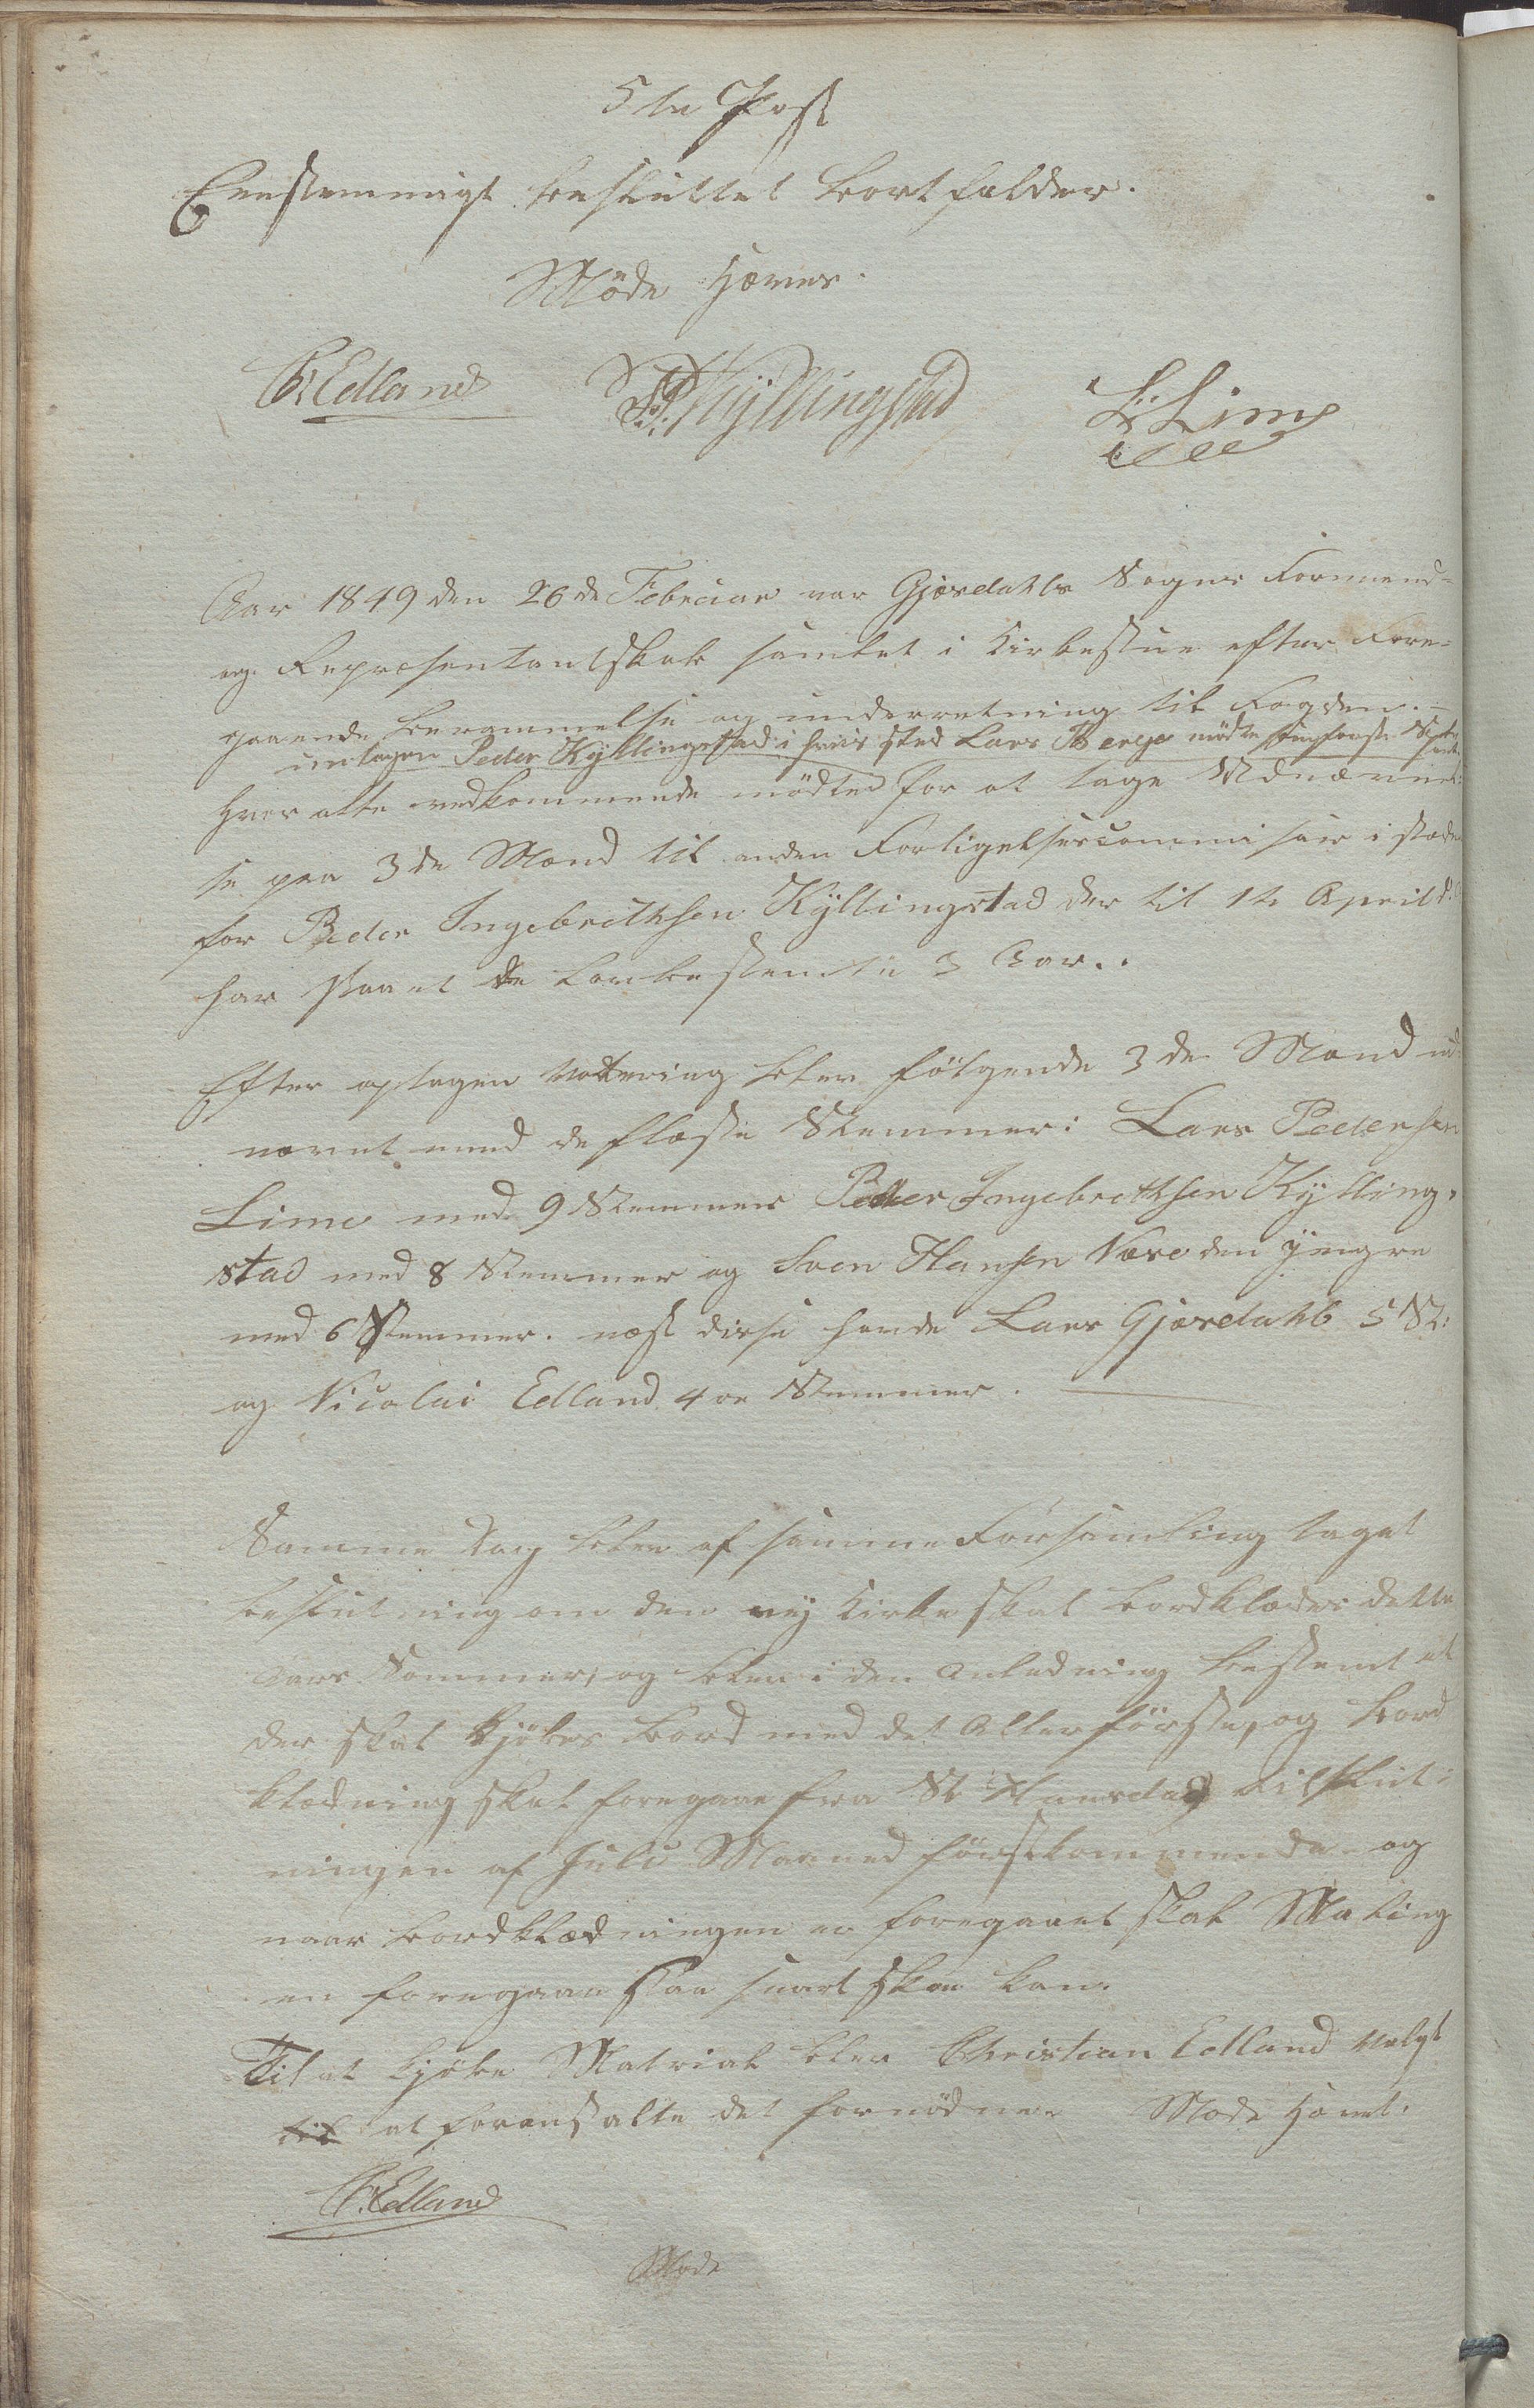 5te Post
Eenstemmigt besluttet bortfalder.
Møde Hæves.
C. Edland P. Kyllingstad L. Lime
Aar 1849 den 26de Februar var Gjæsdahls Sogns Formend-
og Repræsentantskab samlet i Kirkestue efter Fore-
gaaende berammelse og underretning til Fogden. –
untagen Peder Kyllingstad i hvis sted Lars Berge mødte
hvor alle vedkommende mødte for at tage Udnævnel-
se paa 3de Mænd til anden Forligelsescommisair i stæden
for Peder Ingebrethsen Kyllingstad der til 1te April d.
har staaet de Lovbestemte 3 Aar..
Efter optagen Vottering blev følgende 3de Mænd ud-
nævnt med de fleste Stemmer: Lars Pedersen
Lime med 9 Stemmer Peder Ingebrethsen Kylling-
stad med 8 Stemmer og Sven Hansen Næse den yngre
med 6 Stemmer. næst disse havde Lars Gjæsdahl 5 St:
og Nicolai Edland 4re Stemmer.
Samme Dag blev af samme Forsamling taget
beslutning om den ny Kirke skal bordklædes dette
Aars Sommer, og blev i den Anledning bestemt at
der skal Kjøbes Bord med det Allerførste, og Bord
klædning skal foregaae fra St Hansdag til slut-
ningen af Juli Maaned førstkommende og
naar bordklædningen er foregaaet skal Maling
en foregaae saa snart skee kan.
Til at kjøbe Matrial blev Christian Edland valgt
til at foranstalte det fornødne Møde Hævet.
C. Edland
Møde